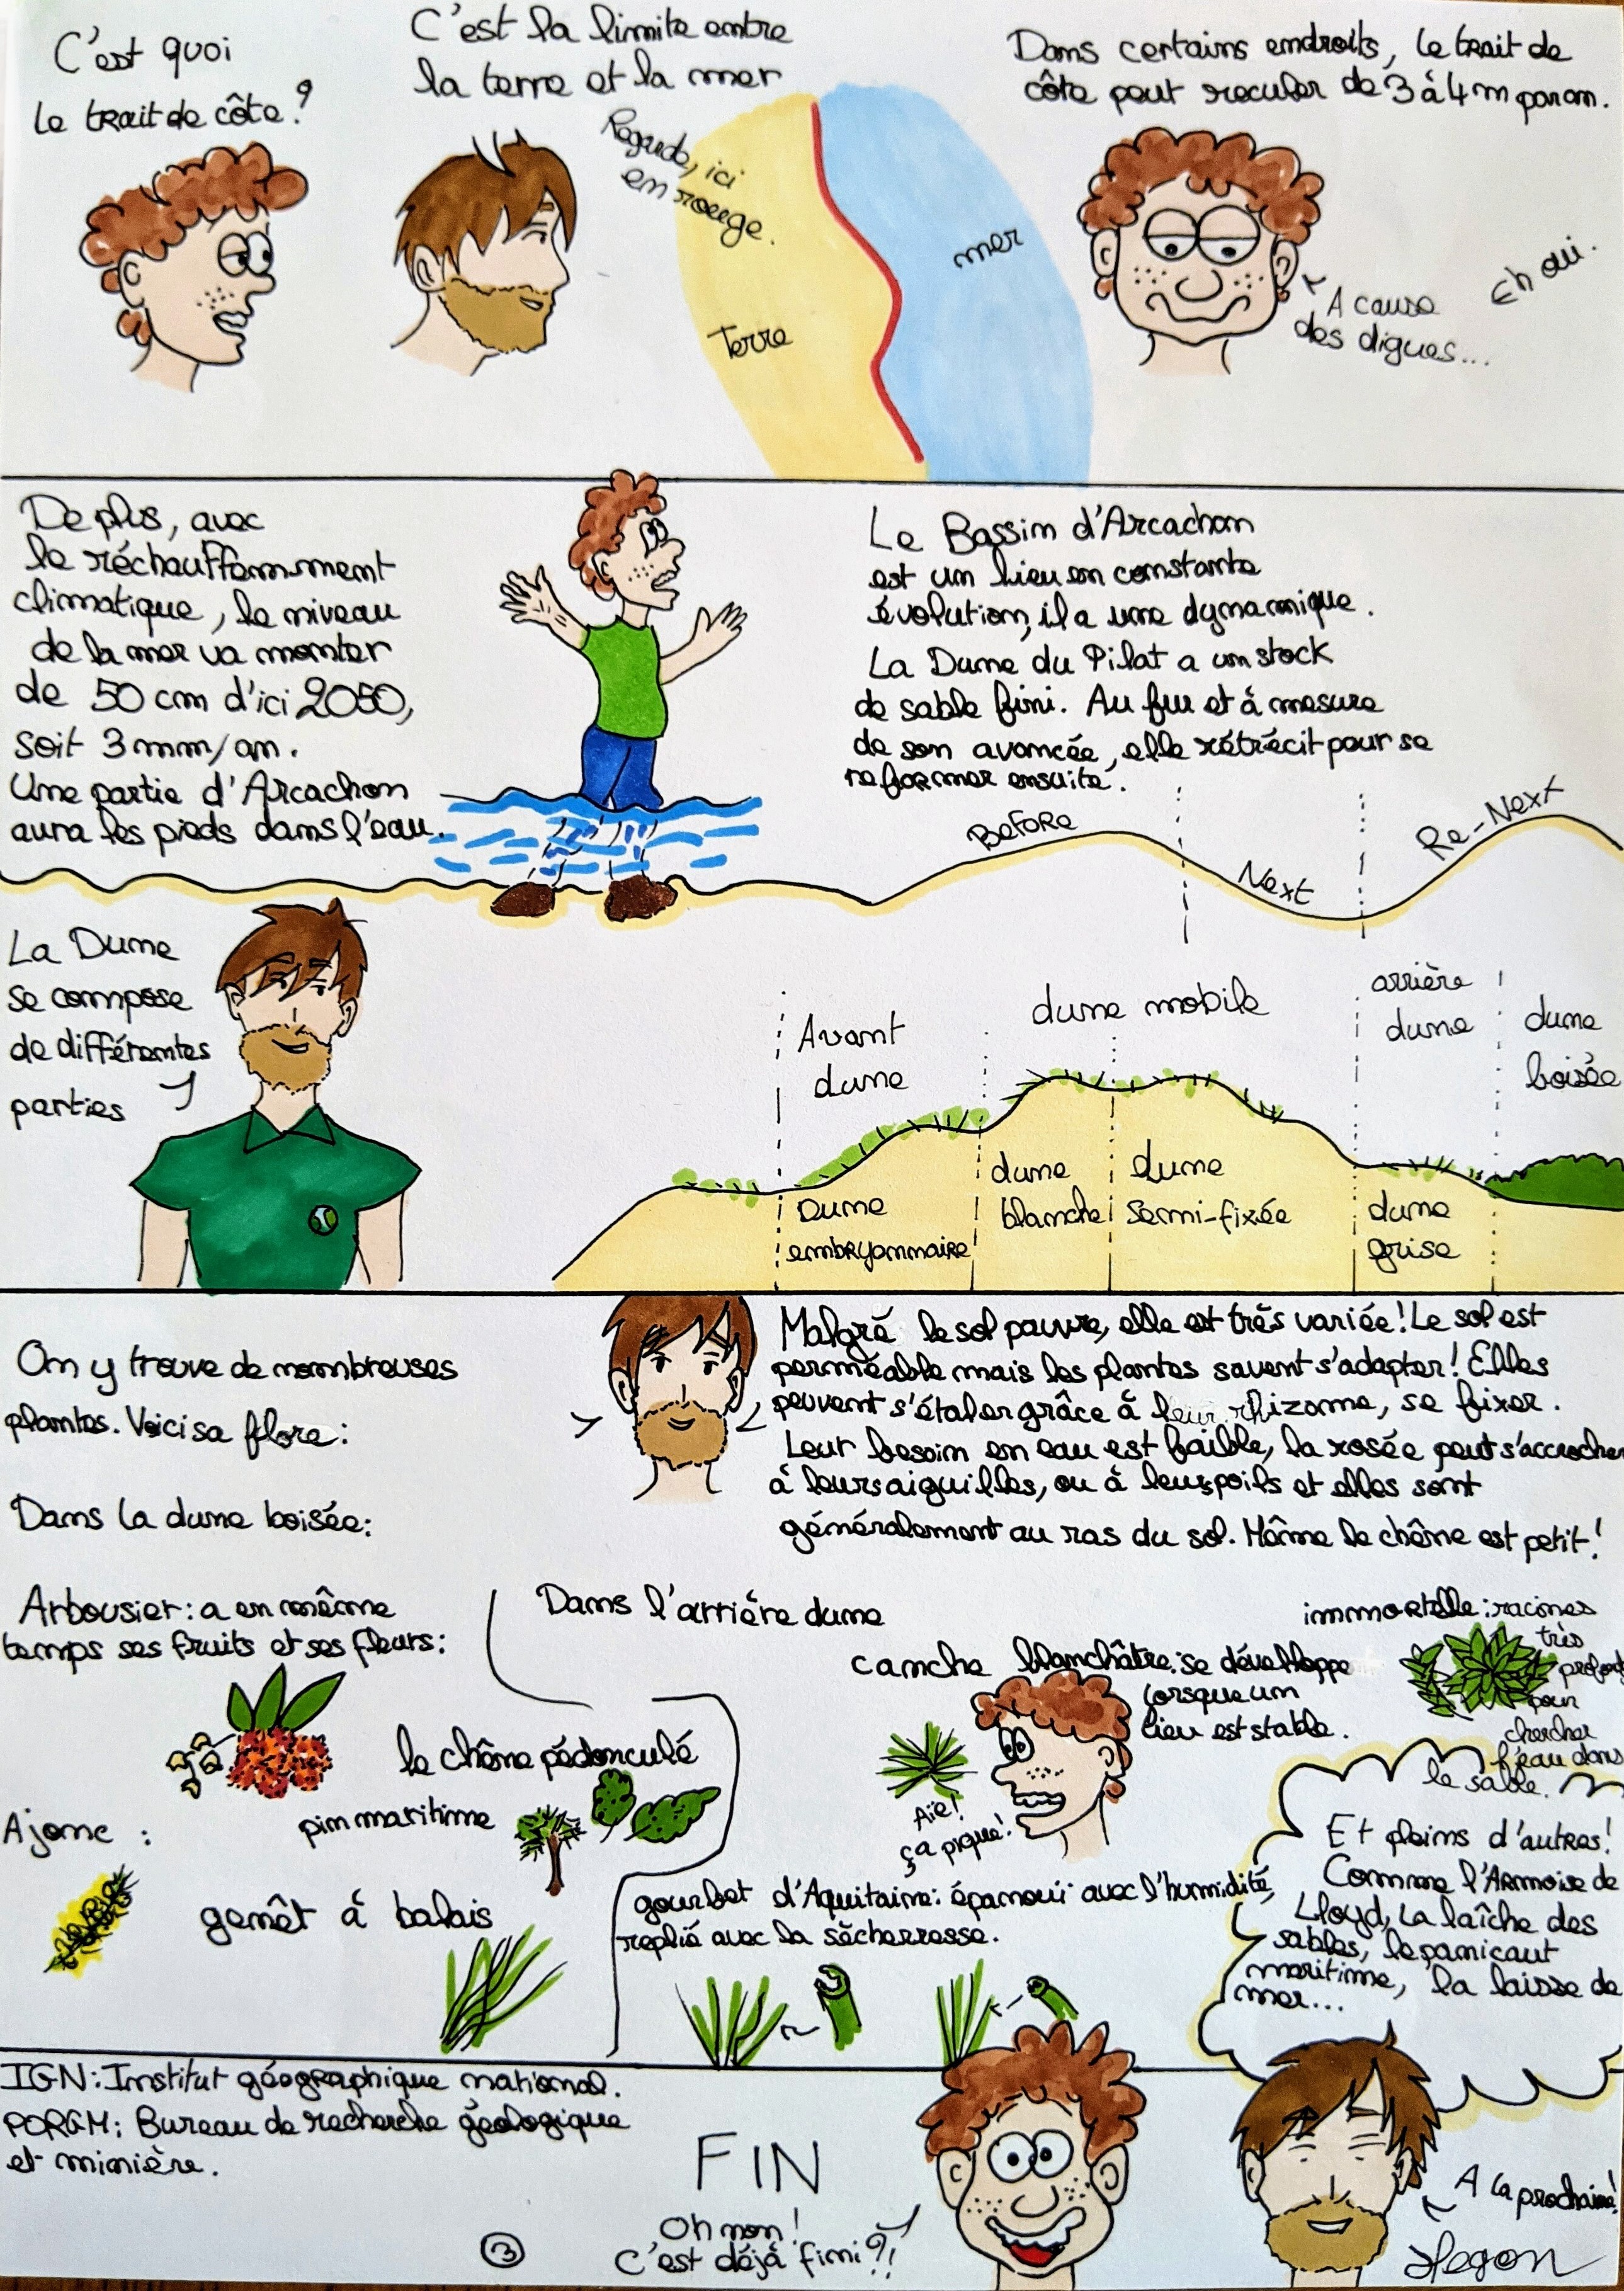 C'est quoi
le trait de côte?
C'est la limite entre
la terre et la mer
Regarde, ici
en rouge.
Terre
mer
Dans certains endroits, le trait de
côte peut reculer de 3 à 4 m par an.
A cause
des digues...
Eh oui.
De plus, avec
le réchauffemmment
climatique, le niveau
de la mer va monter
de 50 cm d'ici 2050,
soit 3 mm/an.
Une partie d'Arcachon
aura les pieds dans l'eau.
Le Bassin d'Arcachon
est un lieu en constante
évolution, il a une dynamique.
La Dune du Pilat a un stock
de sable fini. Au fur et à mesure
de son avancée, elle rétrécit pour se
reformer ensuite.
Before
Next
Re-Next
La Dune
se compose
de différentes
parties
Avant
dune
dune mobile
arrière
dune
dune
boisée
Dune
embryonnaire
dune
blanche
dune
semi-fixée
dune
grise
On y trouve de nombreuses
plantes. Voici sa flore:
Malgré le sol pauvre, elle est très variée! Le sol est
perméable mais les plantes savent s'adapter! Elles
peuvent s'étaler grâce à leur rhizome, se fixer.
Leur besoin en eau est faible, la rosée peut s'accrocher
à leurs aiguilles, ou à leurs poils et elles sont
généralement au ras du sol. Même le chêne est petit!
Dans la dune boisée:
Arbousier: a en même
temps ses fruits et ses fleurs:
le chêne pédonculé
pin maritime
Ajonc :
genêt à balais
Dans l'arrière dune
canche blanchâtre: se développe
lorsque un
lieu est stable.
Aïe!
ça pique!
immortelle: racines
très
pour
chercher
l'eau dans
le sable.
gourbet d'Aquitaine: épanoui avec l'humidité,
replié avec la sècherresse.
Et pleins d'autres!
Comme l'Armoise de
Lloyd, la laîche des
sables, le panicaut
maritime, la laisse de
mer...
IGN: Institut géographique national.
Bureau de recherche géologique
et minière.
FIN
Oh non!
C'est déjà fini?!
3
A la prochaine!